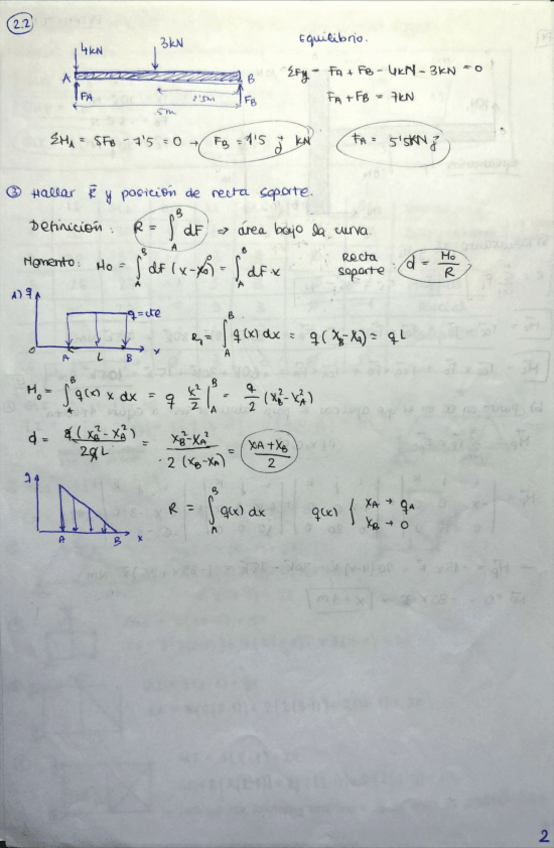 2.2
4kN 3kN Equilibrio.
A B ΣFy = FA + FB - 4kN - 3kN = 0
FA 2'5m FB
5m FA + FB = 7kN
ΣMA = 5FB - 7'5 = 0 → FB = 1'5 j kN FA = 5'5kN j
③ Hallar R⃗ y posición de recta soporte.
Definición: R = ∫_A^B dF ⇒ área bajo la curva.
Momento: Mo = ∫_A^B dF (x - x0) = ∫_A^B dF·x Recta soporte: d = Mo/R
A) q q=cte
O A L B x R1 = ∫_A^B q(x) dx = q(xB - xA) = qL
Mo = ∫_A^B q(x) x dx = q x²/2 |_A^B = q/2 (xB² - xA²)
d = q(xB² - xA²)/2qL = xB² - xA²/2(xB - xA) = xA + xB/2
A B x R = ∫_A^B q(x) dx q(x) { xA → qA
xB → 0
2